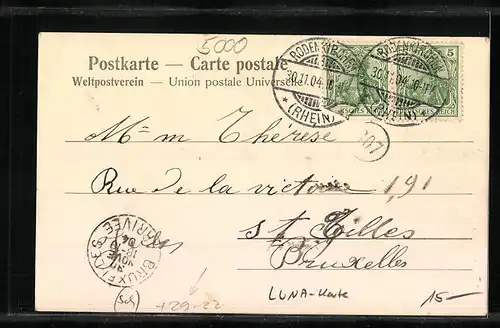 5000
Postkarte — Carte postale
Weltpostverein — Union postale Universelle
RODENKIRCHEN
30.11.04.
* (RHEIN) *
RODENKIRCHEN
30.11.04.
(RHEIN)
5
REICH
107
Mme Thérèse
Rue de la victoire 191
St Gilles
Bruxelles
ARRIVÉE
NOVE
04
LUNA-Karte
15-